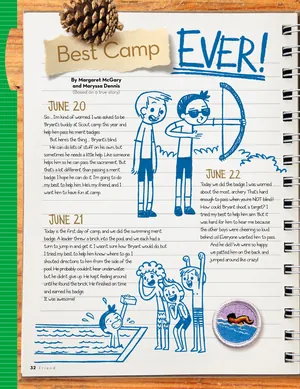 Best Camp
EVER!
By Margaret McGary
and Maryssa Dennis
(Based on a true story)
JUNE 20
So... I'm kind of worried. I was asked to be
Bryant's buddy at Scout camp this year and
help him pass his merit badges.
But here's the thing... Bryant's blind.
He can do lots of stuff on his own, but
sometimes he needs a little help. Like someone
helps him so he can pass the sacrament. But
that's a lot different than passing a merit
badge. I hope he can do it. I'm going to do
my best to help him. He's my friend, and I
want him to have fun at camp.
JUNE 21
Today is the first day of camp and we did the swimming merit
badge. A leader threw a brick into the pool and we each had a
turn to jump in and get it. I wasn't sure how Bryant would do, but
I tried my best to help him know where to go. I
shouted directions to him from the side of the
pool. He probably couldn't hear underwater,
but he didn't give up. He kept feeling around
until he found the brick. He finished on time
and earned his badge.
It was awesome!
JUNE 22
Today we did the badge I was worried
about the most: archery. That's hard
enough to pass when you're NOT blind!
How could Bryant shoot a target? I
tried my best to help him aim. But it
was hard for him to hear me because
the other boys were cheering so loud
behind us! Everyone wanted him to pass.
And he did! We were so happy,
we patted him on the back and
jumped around like crazy!
32 Friend